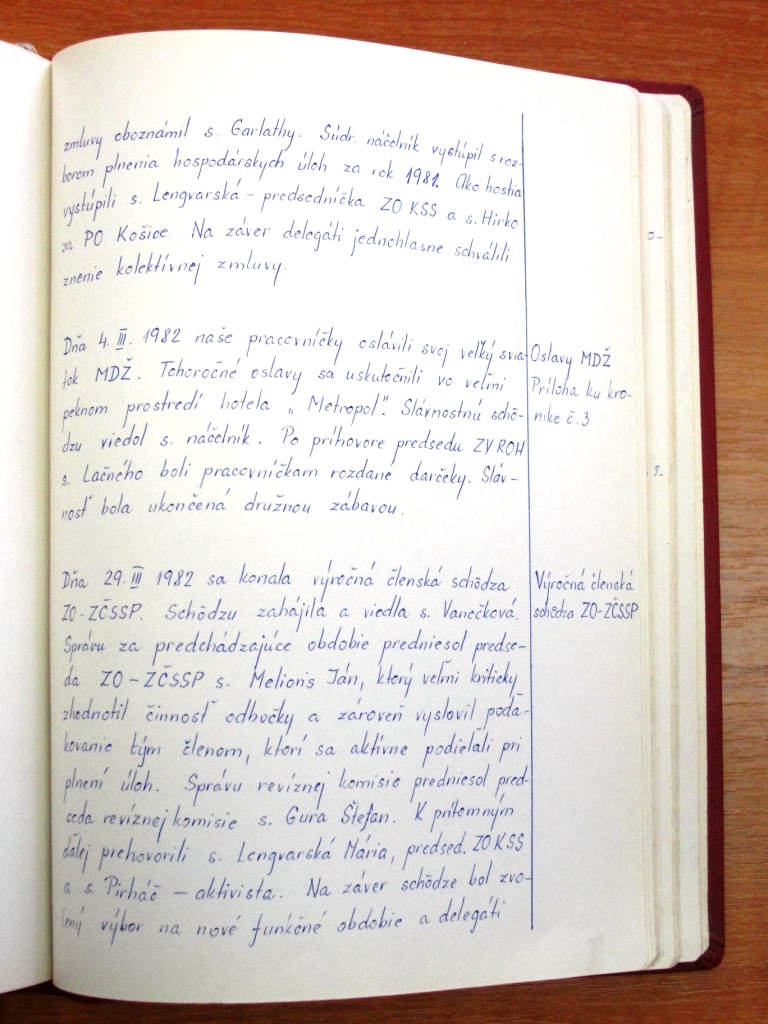 zmluvy oboznámil s. Garlathy. Súdr. náčelník vystúpil s roz-
borom plnenia hospodárskych úloh za rok 1981. Ako hostia
vystúpili s. Lengvarská - predsedníčka ZO KSS a s. Hirko
za PO Košice. Na záver delegáti jednohlasne schválili
znenie kolektívnej zmluvy.
Dňa 4. III. 1982 naše pracovníčky oslávili svoj veľký svia-
tok MDŽ. Tohoročné oslavy sa uskutočnili vo veľmi
peknom prostredí hotela „Metropol". Slávnostnú schô-
dzu viedol s. náčelník. Po príhovore predsedu ZV ROH
s. Lačného boli pracovníčkam rozdané darčeky. Sláv-
nosť bola ukončená družnou zábavou.
Oslavy MDŽ
Príloha ku kro-
nike č.3
Dňa 29. III 1982 sa konala výročná členská schôdza
ZO-ZČSSP. Schôdzu zahájila a viedla s. Vanečková.
Správu za predchádzajúce obdobie predniesol predse-
da ZO-ZČSSP s. Melioris Ján, ktorý veľmi kriticky
zhodnotil činnosť odbočky a zároveň vyslovil poďa-
kovanie tým členom, ktorí sa aktívne podieľali pri
plnení úloh. Správu revíznej komisie predniesol pred-
seda revíznej komisie s. Gura Štefan. K prítomným
ďalej prehovorili s. Lengvarská Mária, predsed. ZO KSS
a s. Pirháč - aktivista. Na záver schôdze bol zvo-
lený výbor na nové funkčné obdobie a delegáti
Výročná členská
schôdza ZO-ZČSSP